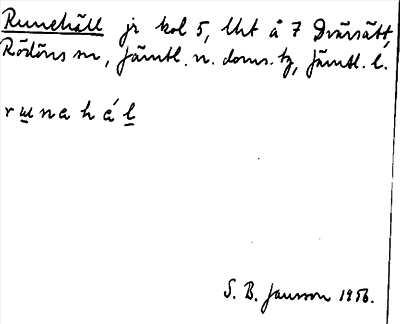 Runehäll jr kol 5, Uht å 7 Dvärsätt,
Rödöns sn, Jämtl. n. doms. tg, Jämtl. l.
r u n a h á l
S. B. Jansson 1956.